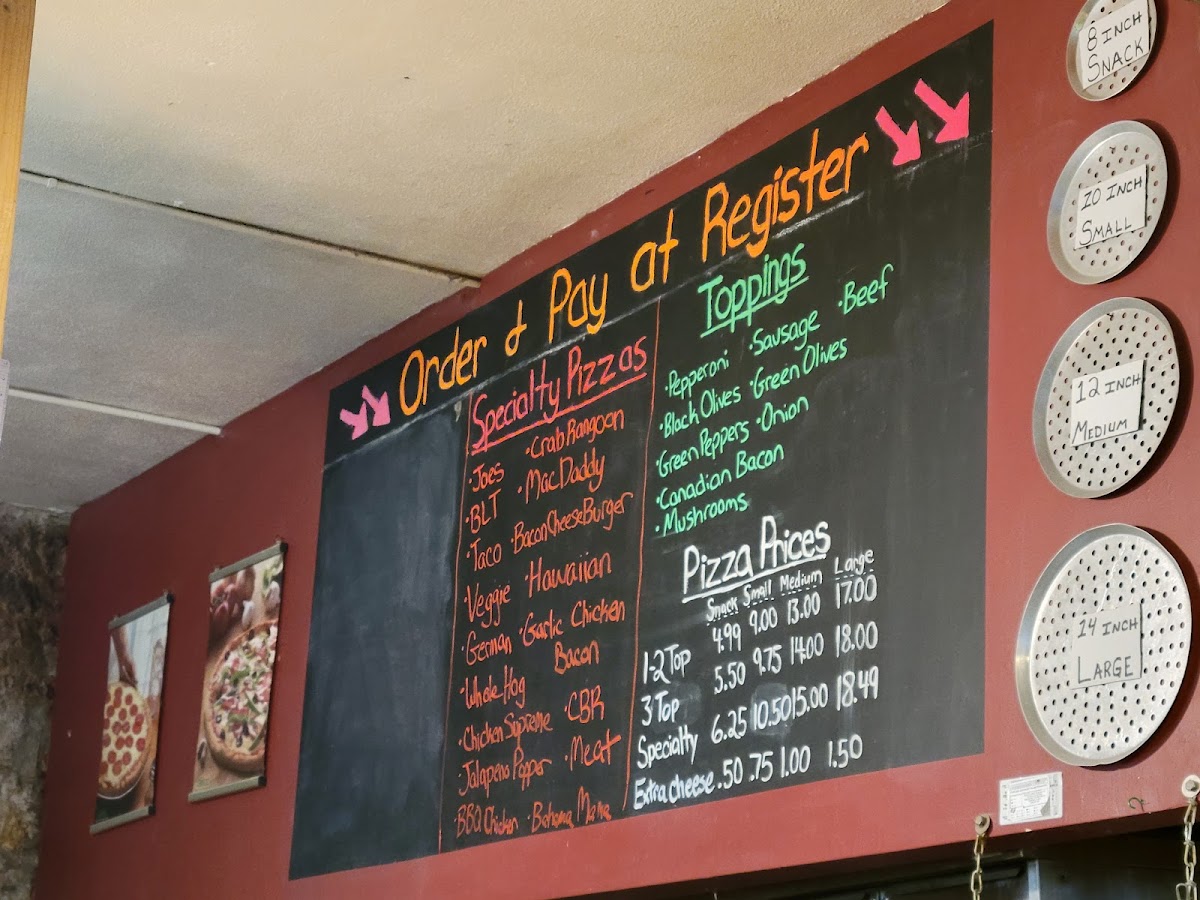 Order & Pay at Register
Specialty Pizzas
·Joes ·Crab Rangoon
·BLT ·Mac Daddy
·Taco ·Bacon Cheese Burger
Veggie ·Hawaiian
·German ·Garlic Chicken
Bacon
·Whole Hog
·Chicken Supreme ·CBR
·Jalapeno Popper ·Meat
·BBQ Chicken ·Bahama Mama
Toppings
·Pepperoni ·Sausage ·Beef
·Black Olives ·Green Olives
·Green Peppers ·Onion
·Canadian Bacon
·Mushrooms
Pizza Prices
Snack Small Medium Large
1-2 Top 4.99 9.00 13.00 17.00
3 Top 5.50 9.75 14.00 18.00
Specialty 6.25 10.50 15.00 18.49
Extra Cheese .50 .75 1.00 1.50
8 INCH
SNACK
10 INCH
SMALL
12 INCH
MEDIUM
14 INCH
LARGE